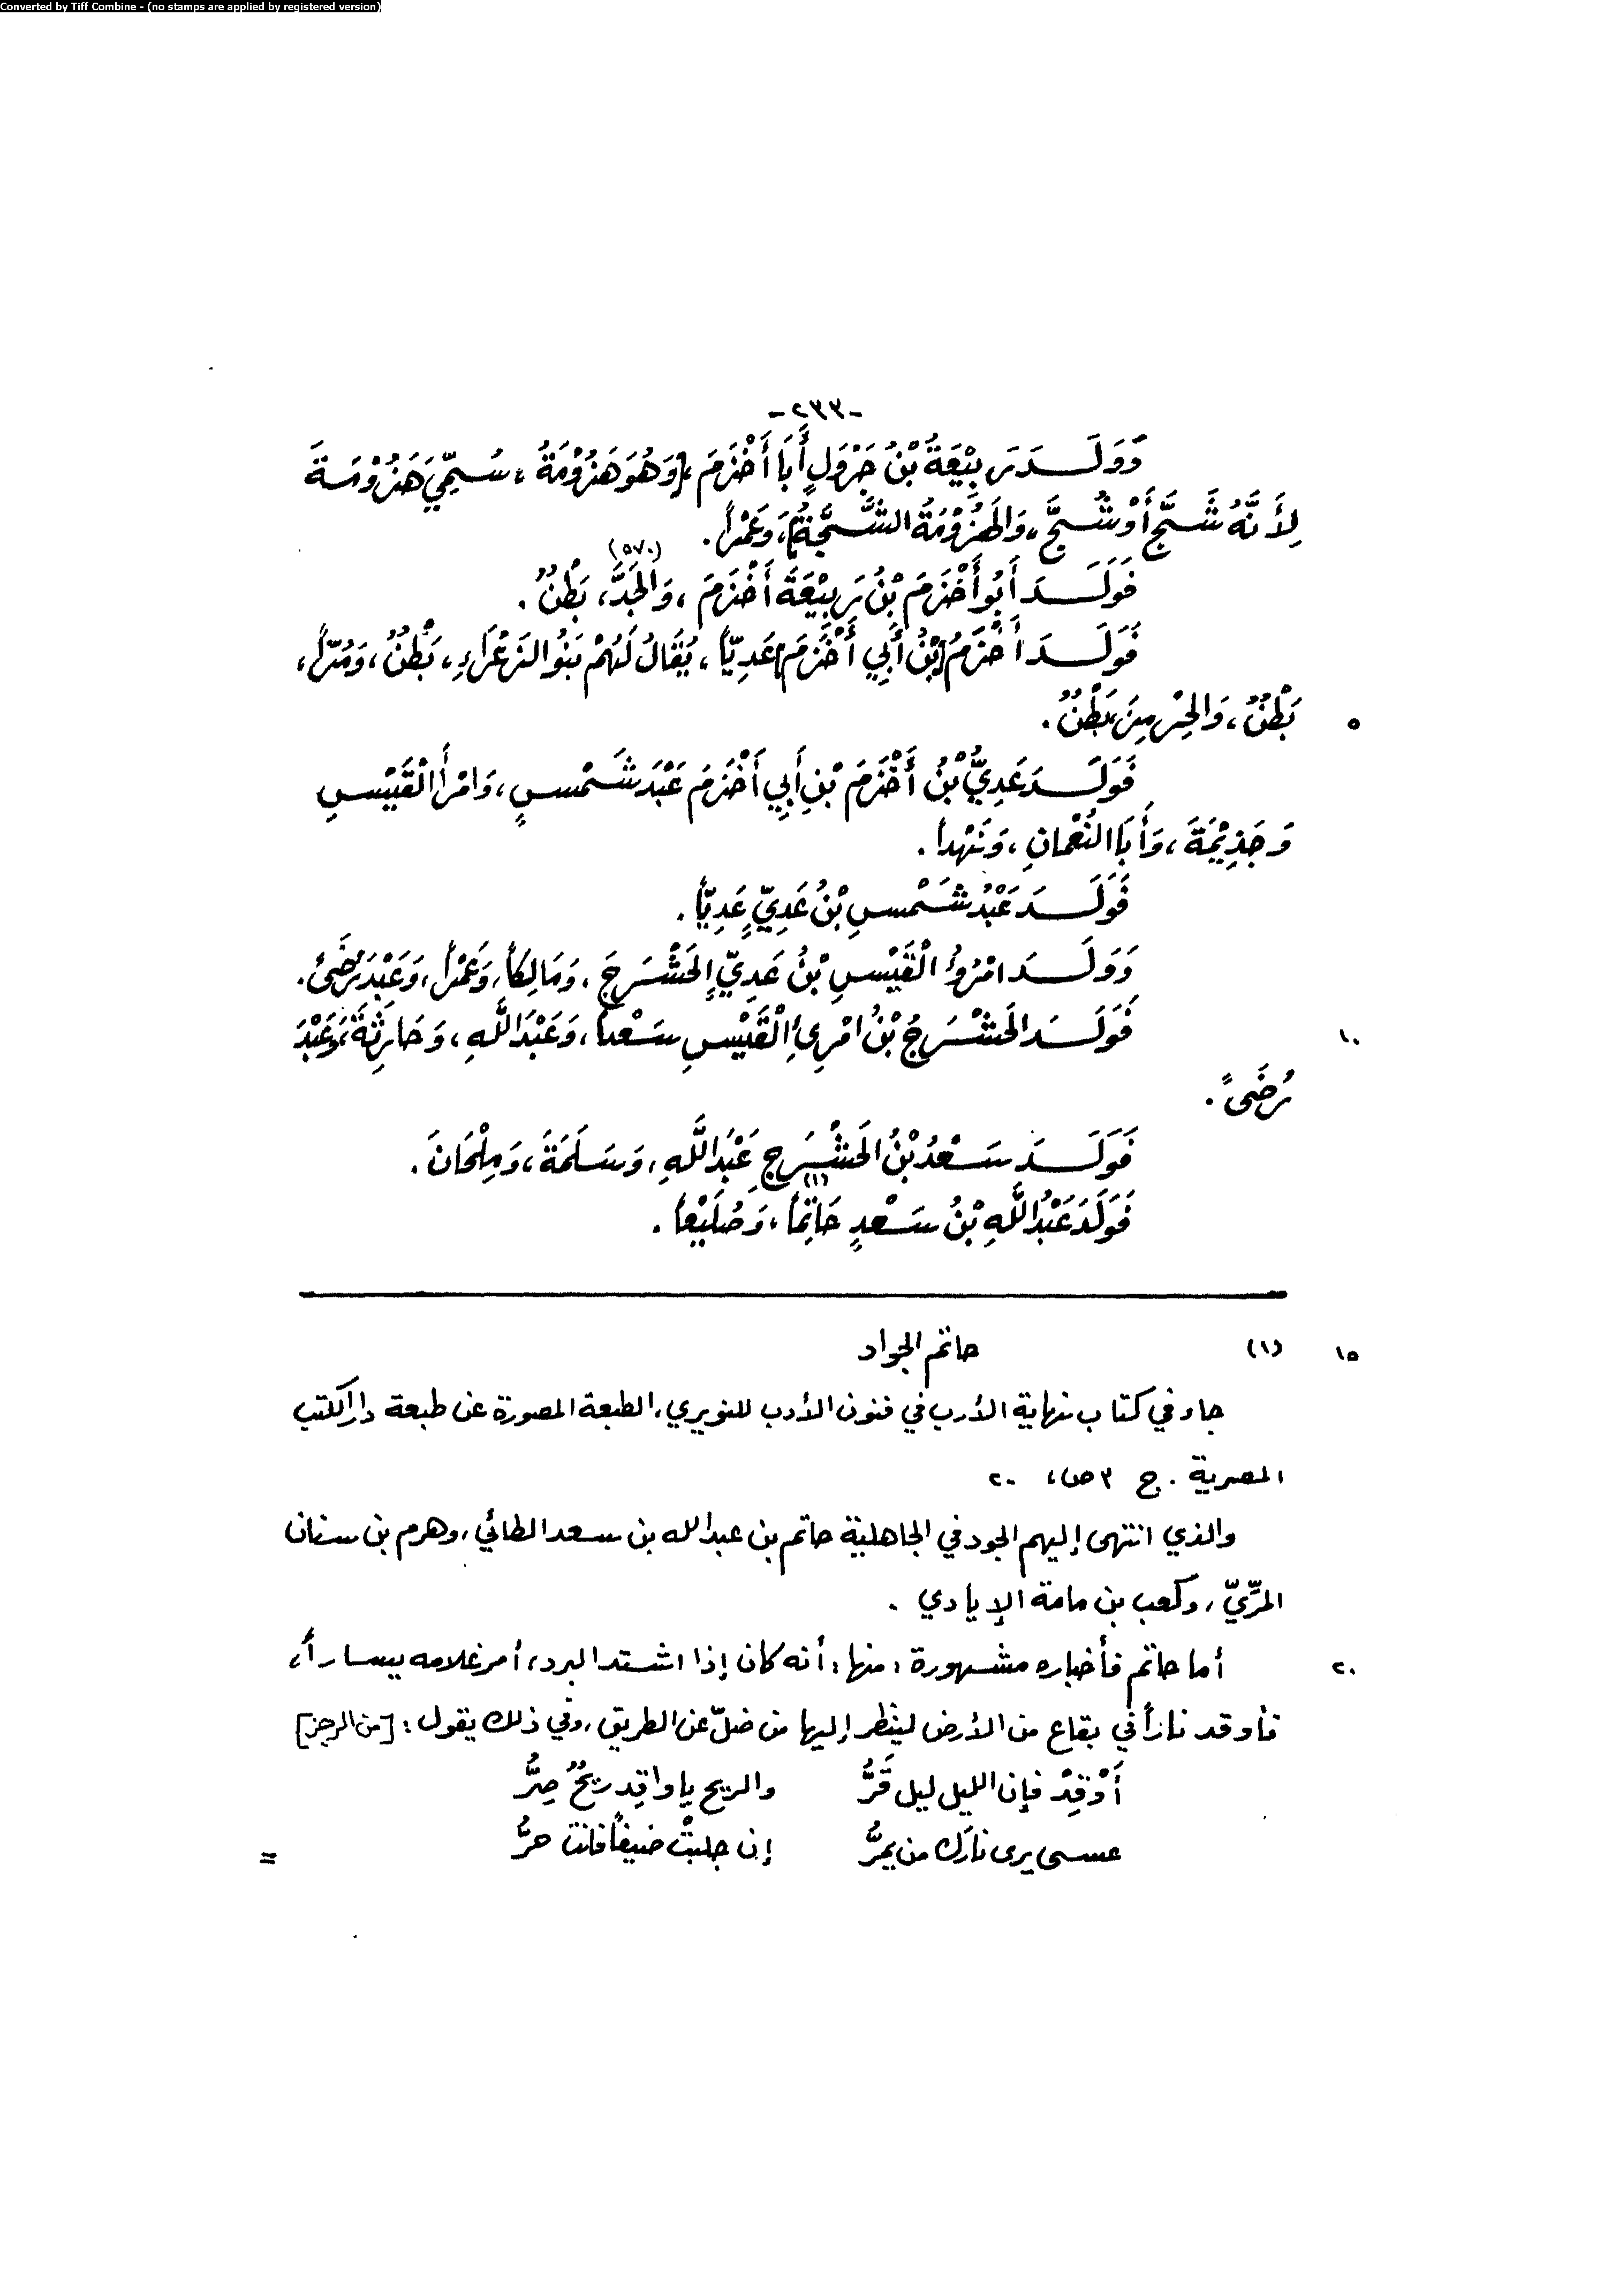 Converted by Tiff Combine - (no stamps are applied by registered version)
-٢٣٣-
وَوَلَـــدَ رَبِيْعَةُ بْنُ جَرْوَلٍ أَبَا أَخْزَمَ، [وَهُوَ هَزُوْمَةُ، سُمِّيَ هَزُوْمَةَ
لِأَنَّهُ شَجَّ أَوْ شُجَّ، وَالهَزُوْمَةُ الشَّجَّةُ]، وَعَمْراً.
فَوَلَـــدَ أَبُو أَخْزَمَ بْنُ رَبِيْعَةَ أَخْزَمَ، وَالجَدَّ، (٥٧٠) بَطْنٌ.
فَوَلَـــدَ أَخْزَمُ [بْنُ أَبِي أَخْزَمَ] عَدِيّاً، يُقَالُ لَهُمْ بَنُو الزَعْرَاءِ، بَطْنٌ، وَمُرّاً،
٥ بَطْنٌ، وَالحِرْمِزَ، بَطْنٌ.
فَوَلَـــدَ عَدِيُّ بْنُ أَخْزَمَ بْنِ أَبِي أَخْزَمَ عَبْدَ شَمْسٍ، وَامْرأَ الْقَيْسِ
وَجَذِيْمَةَ، وَأَبَا النُّعْمَانِ، وَنَهْداً.
فَوَلَـــدَ عَبْدُ شَمْسِ بْنُ عَدِيٍّ عَدِيّاً.
وَوَلَـــدَ امْرُؤُ الْقَيْسِ بْنُ عَدِيٍّ الحَشْرَجَ، وَمَالِكاً، وَعَمْراً، وَعَبْدَ رُضَىً.
١٠ فَوَلَـــدَ الحَشْرَجُ بْنُ امْرِئِ الْقَيْسِ سَعْداً، وَعَبْدَ اللَّهِ، وَحَارِثَةَ، وَعَبْدَ
رُضَىً.
فَوَلَـــدَ سَعْدُ بْنُ الحَشْرَجِ عَبْدَ اللَّهِ، وَسَلَمَةَ، وَمِلْحَانَ.
فَوَلَدَ عَبْدُ اللَّهِ بْنُ سَعْدٍ حَاتِماً، (١) وَصُلَيْعاً.
١٥ (١) حاتم الجواد
جاء في كتاب نهاية الأرب في فنون الأدب للنويري، الطبعة المصورة عن طبعة دار الكتب
المصرية. ج ٣ ص، ٢٠
والذي انتهى إليهم الجود في الجاهلية حاتم بن عبد الله بن سعد الطائي، وهرم بن سنان
المرِّيّ، وكعب بن مامة الإيادي.
٢٠ أما حاتم فأخباره مشهورة، منها: أنه كان إذا اشتد البرد، أمر غلامه يساراً،
فأوقد ناراً في بقاع من الأرض لينظر إليها من ضلّ عن الطريق، وفي ذلك يقول: [من الرجز]
أَوْقِدْ فإن الليل ليل قَرُّ والريح يا واقِد ريحٌ صِرُّ
عسى يرى نارَك من يمرُّ إن جلبتْ ضيفاً فأنت حرُّ
=